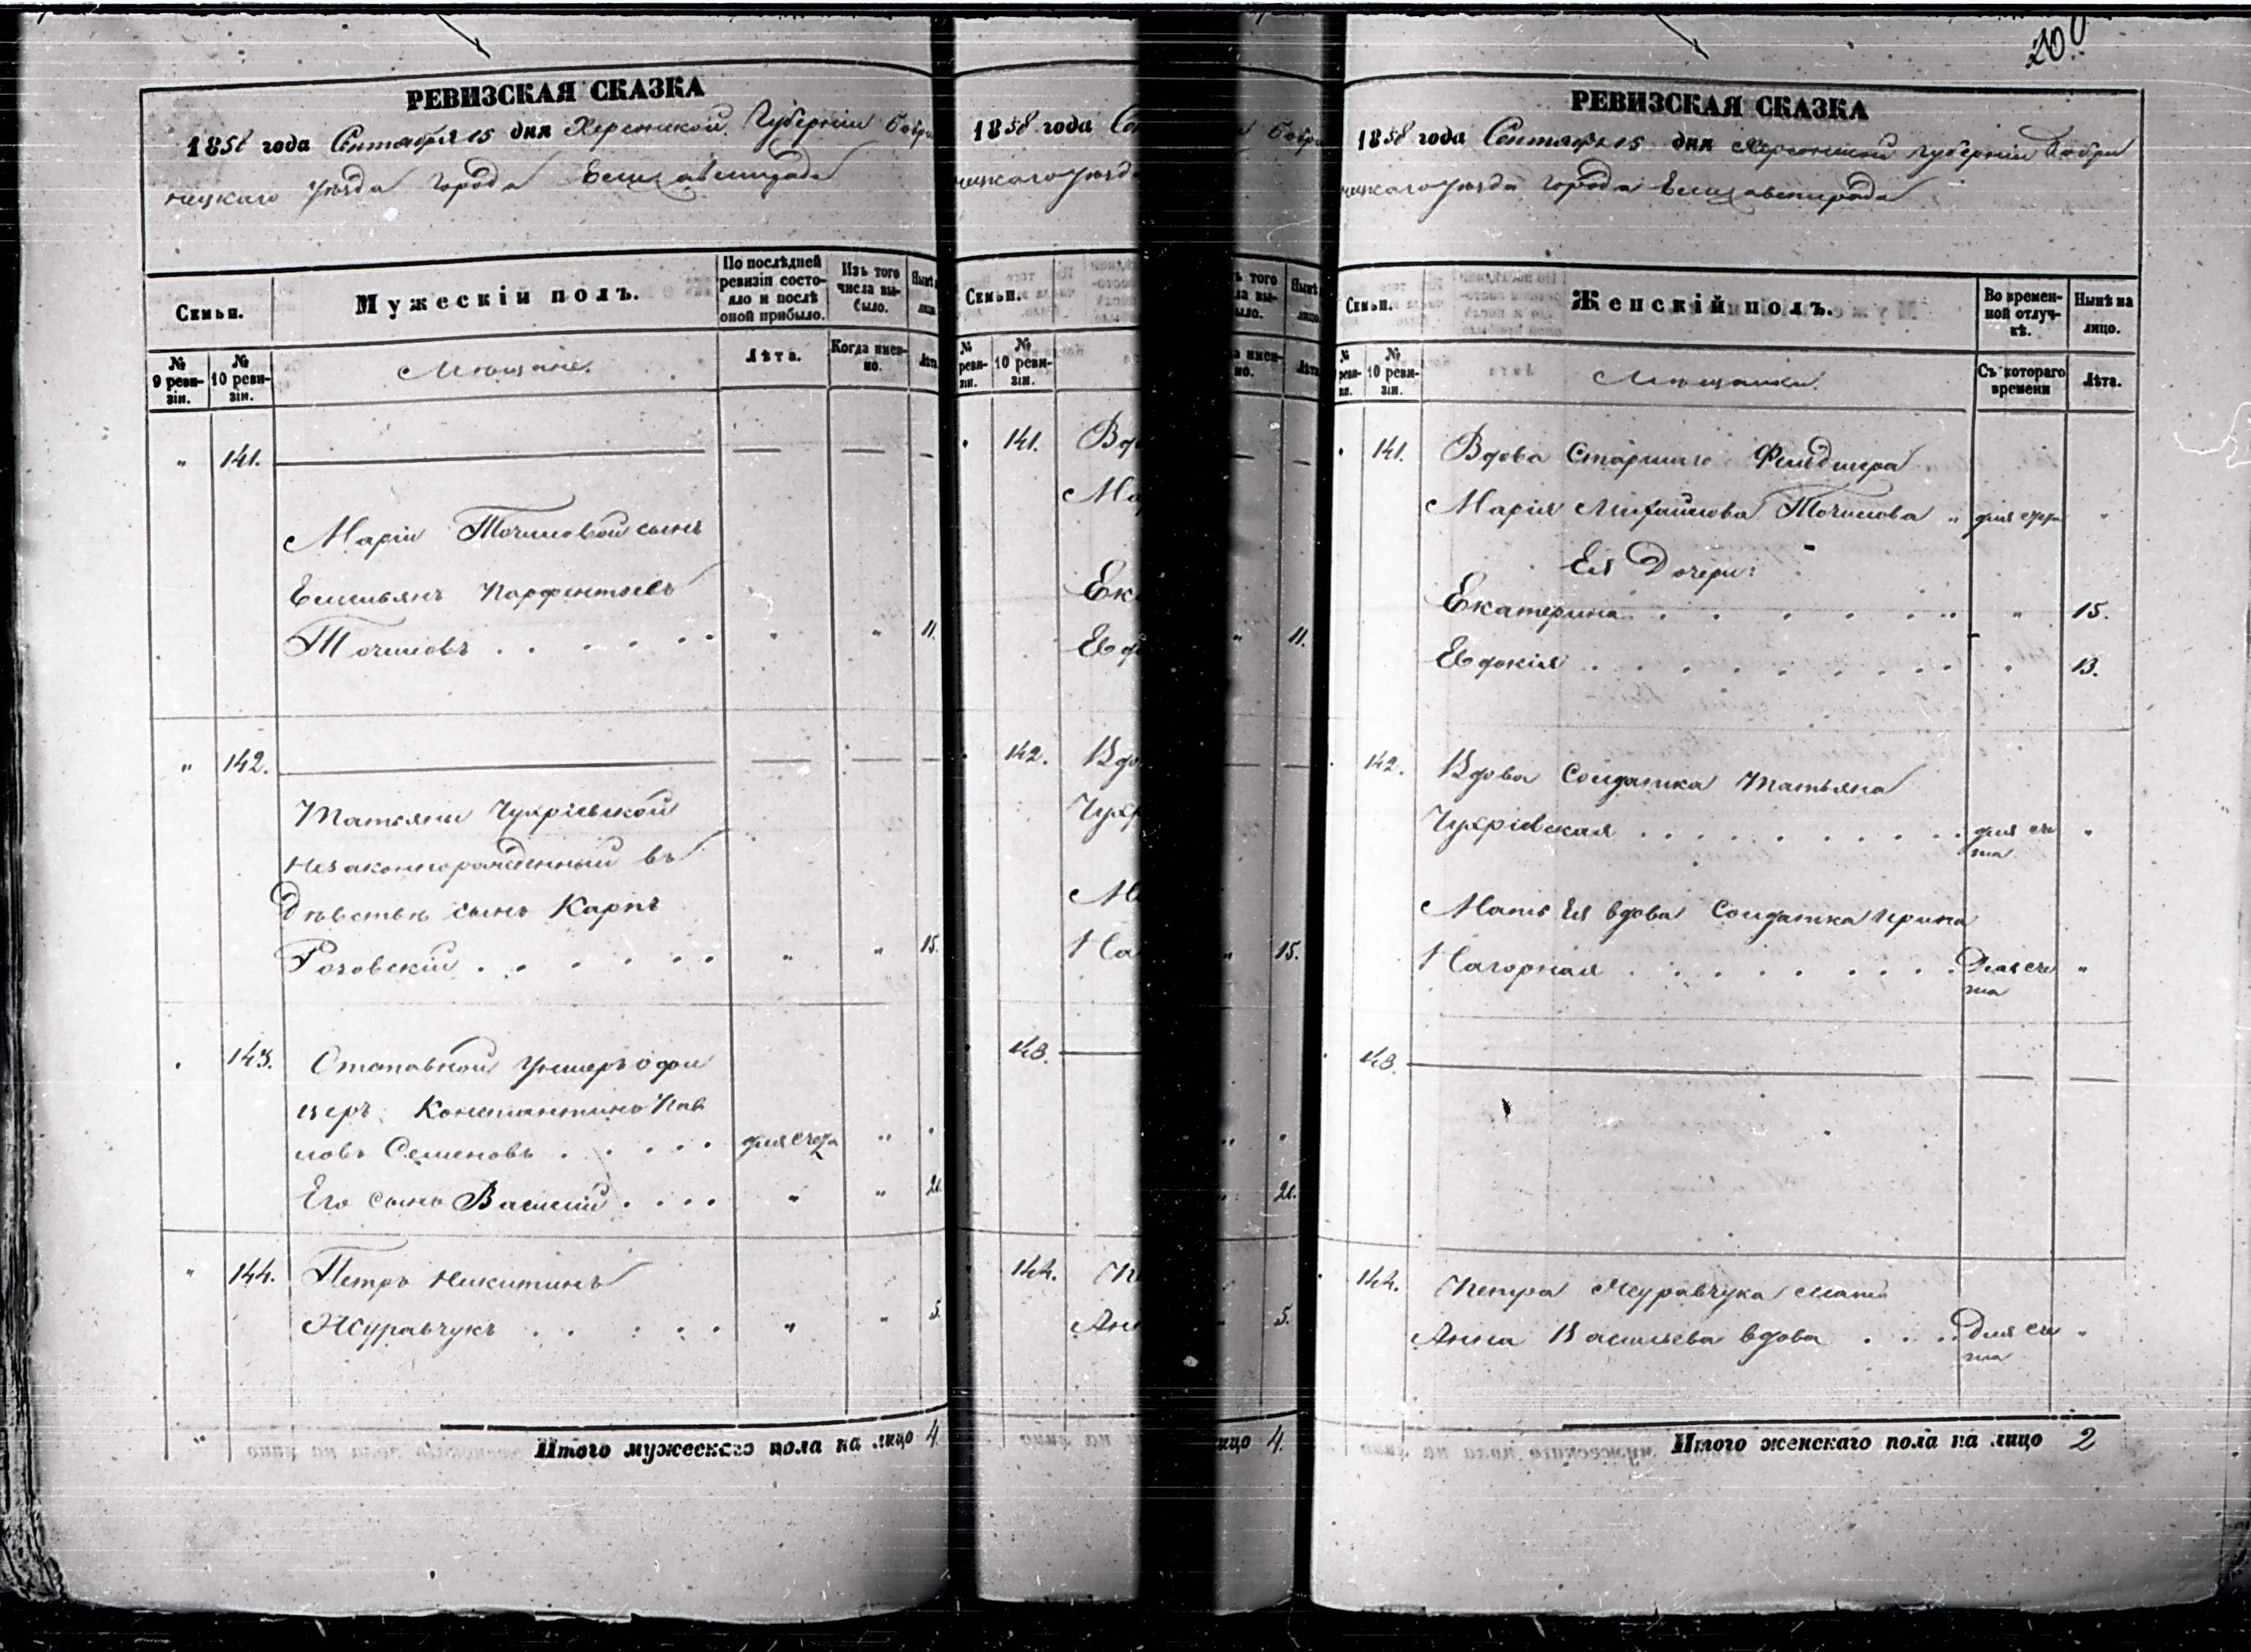 РЕВИЗСКАЯ СКАЗКА
1858 года Сентября 15 дня Херсонской Губерніи Бобри
нецкаго уѣзда города Елисаветграда
Семьи.
Мужескій полъ.
По послѣдней ревизіи состояло и послѣ оной прибыло.
Изъ того числа выбыло.
Нынѣ
№ 9 ревизіи.
№ 10 ревизіи.
Мѣщане.
Лѣта.
Когда именно.
Лѣта
" 141.
Маріи Точиловой сынъ
Емельянъ Парфентьевъ
Точиловъ . . . . . . " " 11.
" 142.
Татьяны Чухріевской
незаконнорожденный въ
Дѣвствѣ сынъ Карпъ
Роговскій . . . . . . " " 15.
" 143. Отставной Унтеръ офи
церъ Константинъ Пав
ловъ Семеновъ . . . . . для счета " "
Его сынъ Василій . . . . " " 21.
" 144. Петръ Никитинъ
Журавчукъ . . . . . " " 5.
Итого мужескаго пола на лицо 4.
1858 года Се
Бобри
нецкаго уѣзда
Семьи.
№ 10 ревизіи.
141. Вдо
Ма
Ек
Евд
11.
142. Вдо
Чухр
Ма
На
15.
143.
21.
144. Пе
Анн
5.
лицо 4.
200
РЕВИЗСКАЯ СКАЗКА
1858 года Сентября 15 дня Херсонской Губерніи Бобри
нецкаго уѣзда города Елисаветграда
Семьи.
Женскій полъ.
Во временной отлучкѣ.
Нынѣ на лицо.
№ 10 ревизіи.
Мѣщанки.
Съ котораго времени
Лѣта.
141. Вдова Старшаго Фелдшера
Марія Михайлова Точилова " для счета "
Ея Дочери:
Екатерина . . . . . . " 15.
Евдокія . . . . . . . . " 13.
142. Вдова Солдатка Татьяна
Чухріевская . . . . . . . . для сче "
та
Мать Ея вдова Солдатка Ирина
Нагорная . . . . . . . . Для сче "
та
143.
144. Петра Журавчука Мать
Анна Васильева вдова . . . Для сче "
та
Итого женскаго пола на лицо 2